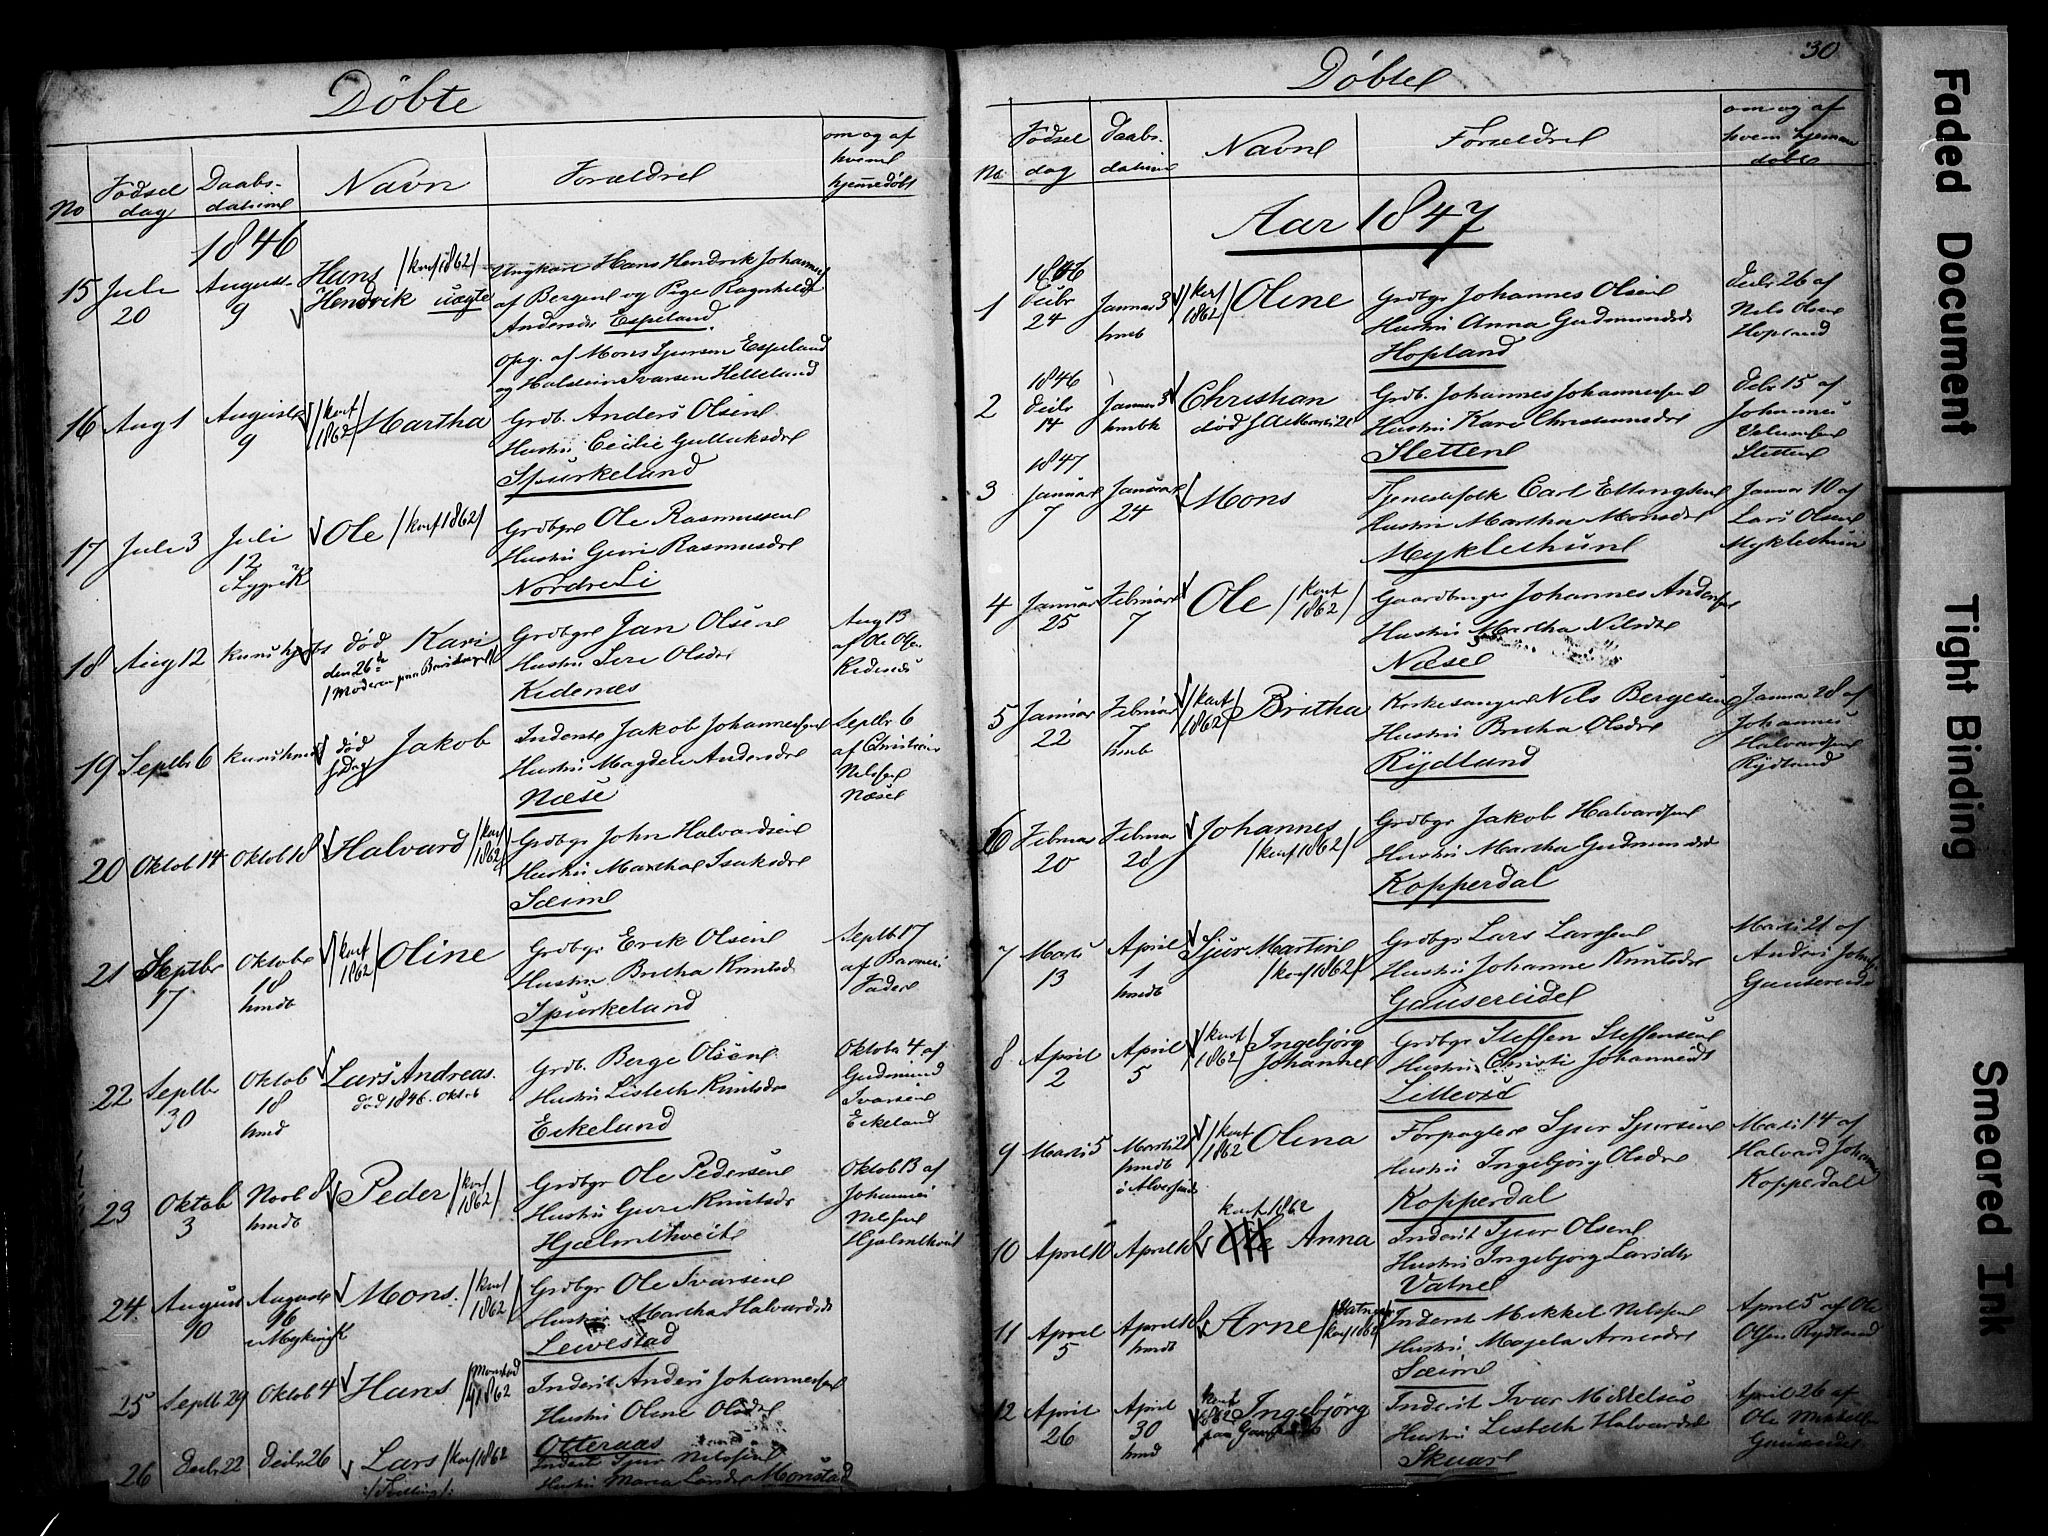 Döbte
No
Födsel
dag
Daabs-
datume
Navn
Forældrel
om og af
hveml
hjemmedöbt
1846
15 Juli
20
August
9
Hans /konf 1862/
Hendrik uægte
Ungkarl Hans Hendrik Johannes
af Bergen og Pige Ragnhilde
Andersdr Espeland
Opg. af Mons Sjursen Espeland
og Halstein Ivarsen Helleland
16 Aug 1
Auguste
9
/konf
1862/ Martha
Grdb. Anders Olsen
Hustru Cecilie Gulliksdr
Spurkeland
17 Juli 3
Juli
12
i Lygre K
Ole /konf 1862/
Grdbgr Ole Rasmussen
Hustru Guri Rasmusdr
Nordre Li
18 Aug 12
död Kari
den 26de
Grdbgr Jan Olsen
Hustru Siri Olsdr
Kidenæs
Aug 13
af Ole Ols
Kidenæs
19 Septbr 6
död
Jakob
Inderste Jakob Johannessen
Hustru Magdele Andersdr
Næse
Septbr 6
af Christian
Nilssen
Næsel
20 Oktob 14
Oktob 18
Halvard /konf
1862/
Grdbgr John Halvardsen
Hustru Martha Isaksdr
Sæim
21 Septbr
17
Oktobr
18
hmdb
/konf
1862/ Oline
Grdbgr Erik Olsen
Hustru Britha Knutsd
Spurkeland
Septb 17
af Barnets
Fader
22 Septbr
30
Oktob
18
hmd
Lars Andreas.
död 1846. Oktob
Grdb. Berge Olsen
Hustru Lisbeth Knutsdr
Eikeland
Oktobr 4 af
Gudmund
Ivarsen
Eikeland
23 Oktob
3
Novb 8
hmdb
Peder /konf
1862/
Grdbgr Ole Pedersen
Hustru Guri Knutsdr
Hjelmtveit
Oktob 13 af
Johannes
Nilsen
Hjelmtveit
24 August
10
Auguste
16
i Myking K
Mons. /konf
1862/
Grdbgr Ole Ivarsen
Hustru Martha Halvardsdr
Leivestad
25 Septb 29
Oktob 4
Hans /Monstad
1862
Inderst Anders Johannessen
Hustru Olene Olsdr
Otteraas
26 Decbr 22
Decbr 26
Lars /konf 1862
:/Tvilling/:
Inderst Sjur Nilssen
Hustru Maria Larsdr Monstad
Döbte
30
No
Födsel
dag
Daabs-
datume
Navne
Forældre
om og af
hvem hjemme
döbte
Aar 1847
1846
1 Decbr
24
Januar 3
hmb
/konf
1862/ Oline
Grdbgr Johannes Olsen
Hustru Anna Gudmundsdr
Hopland
Decbr 26 af
Nils Olsen
Hopland
1846
2 Decbr
14
Januar 3
Christian
Grdb. Johannes Johannessen
Hustru Kari Christiansdr
Sletten
Decbr 15 af
Johannes
Sletten
1847
3 Januar
7
Januar
24
Mons
Tjenestefolk Carl Ellingsen
Hustru Martha Monsdr
Mykletun
Januar 10 af
Lars Olsen
Mykletun
4 Januar
25
Februar
7
Ole /konf
1862/
Gaardbruger Johannes Anders
Hustru Martha Nilsdr
Næsel
5 Januar
22
Februar
7
hmb
/konf
1862/ Britha
Kirkesanger Nils Bergesen
Hustru Britha Olsdr
Rydland
Janua 28 af
Johannes
Halvardsen
Rydland
6 Februar
20
Februar
28
Johannes
/konf 1862/
Grdbgr Jakob Halvardsen
Hustru Martha Gudmundsdr
Kopperdal
7 Marti
13
April
1
hmdb
Sjur Martin
/konf 1862/
Grdbgr Lars Larssen
Hustru Johanne Knutsdr
Gausereidel
Marti 21 af
Anders Johs
Gausereide
8 April
2
April
5
/konf
1862/ Ingebjörg
Johannel
Grdbgr Steffen Steffensen
Hustru Christi Johannesdr
Lillevig
9 Marti 5
Marti 21
hmdb
i Alversund
/konf
1862 Olina
Forpagter Sjur Sjursen
Hustru Ingebjörg Olsdre
Kopperdal
Marti 14 af
Halvard Johannes
Kopperdal
10 April 10
April 18
konf 1862
Anna
Inderst Sjur Olsen
Hustru Ingebjörg Larsdr
Vatnel
11 April
5
April 18
hmdb
Arne /Vatne
konf 1862/
Inderst Mikkel Nilssen
Hustru Magela Arnesdr
Sæim
April 5 af Ole
Olsen Rydland
12 April
26
April
30
hmd
konf
1862 Ingebjörg
Inderst Ivar Mikkelsen
Hustru Lisbeth Halvardsdr
Skaar
April 26 af
Ole Mikkelsen
Faded Document
Tight Binding
Smeared Ink